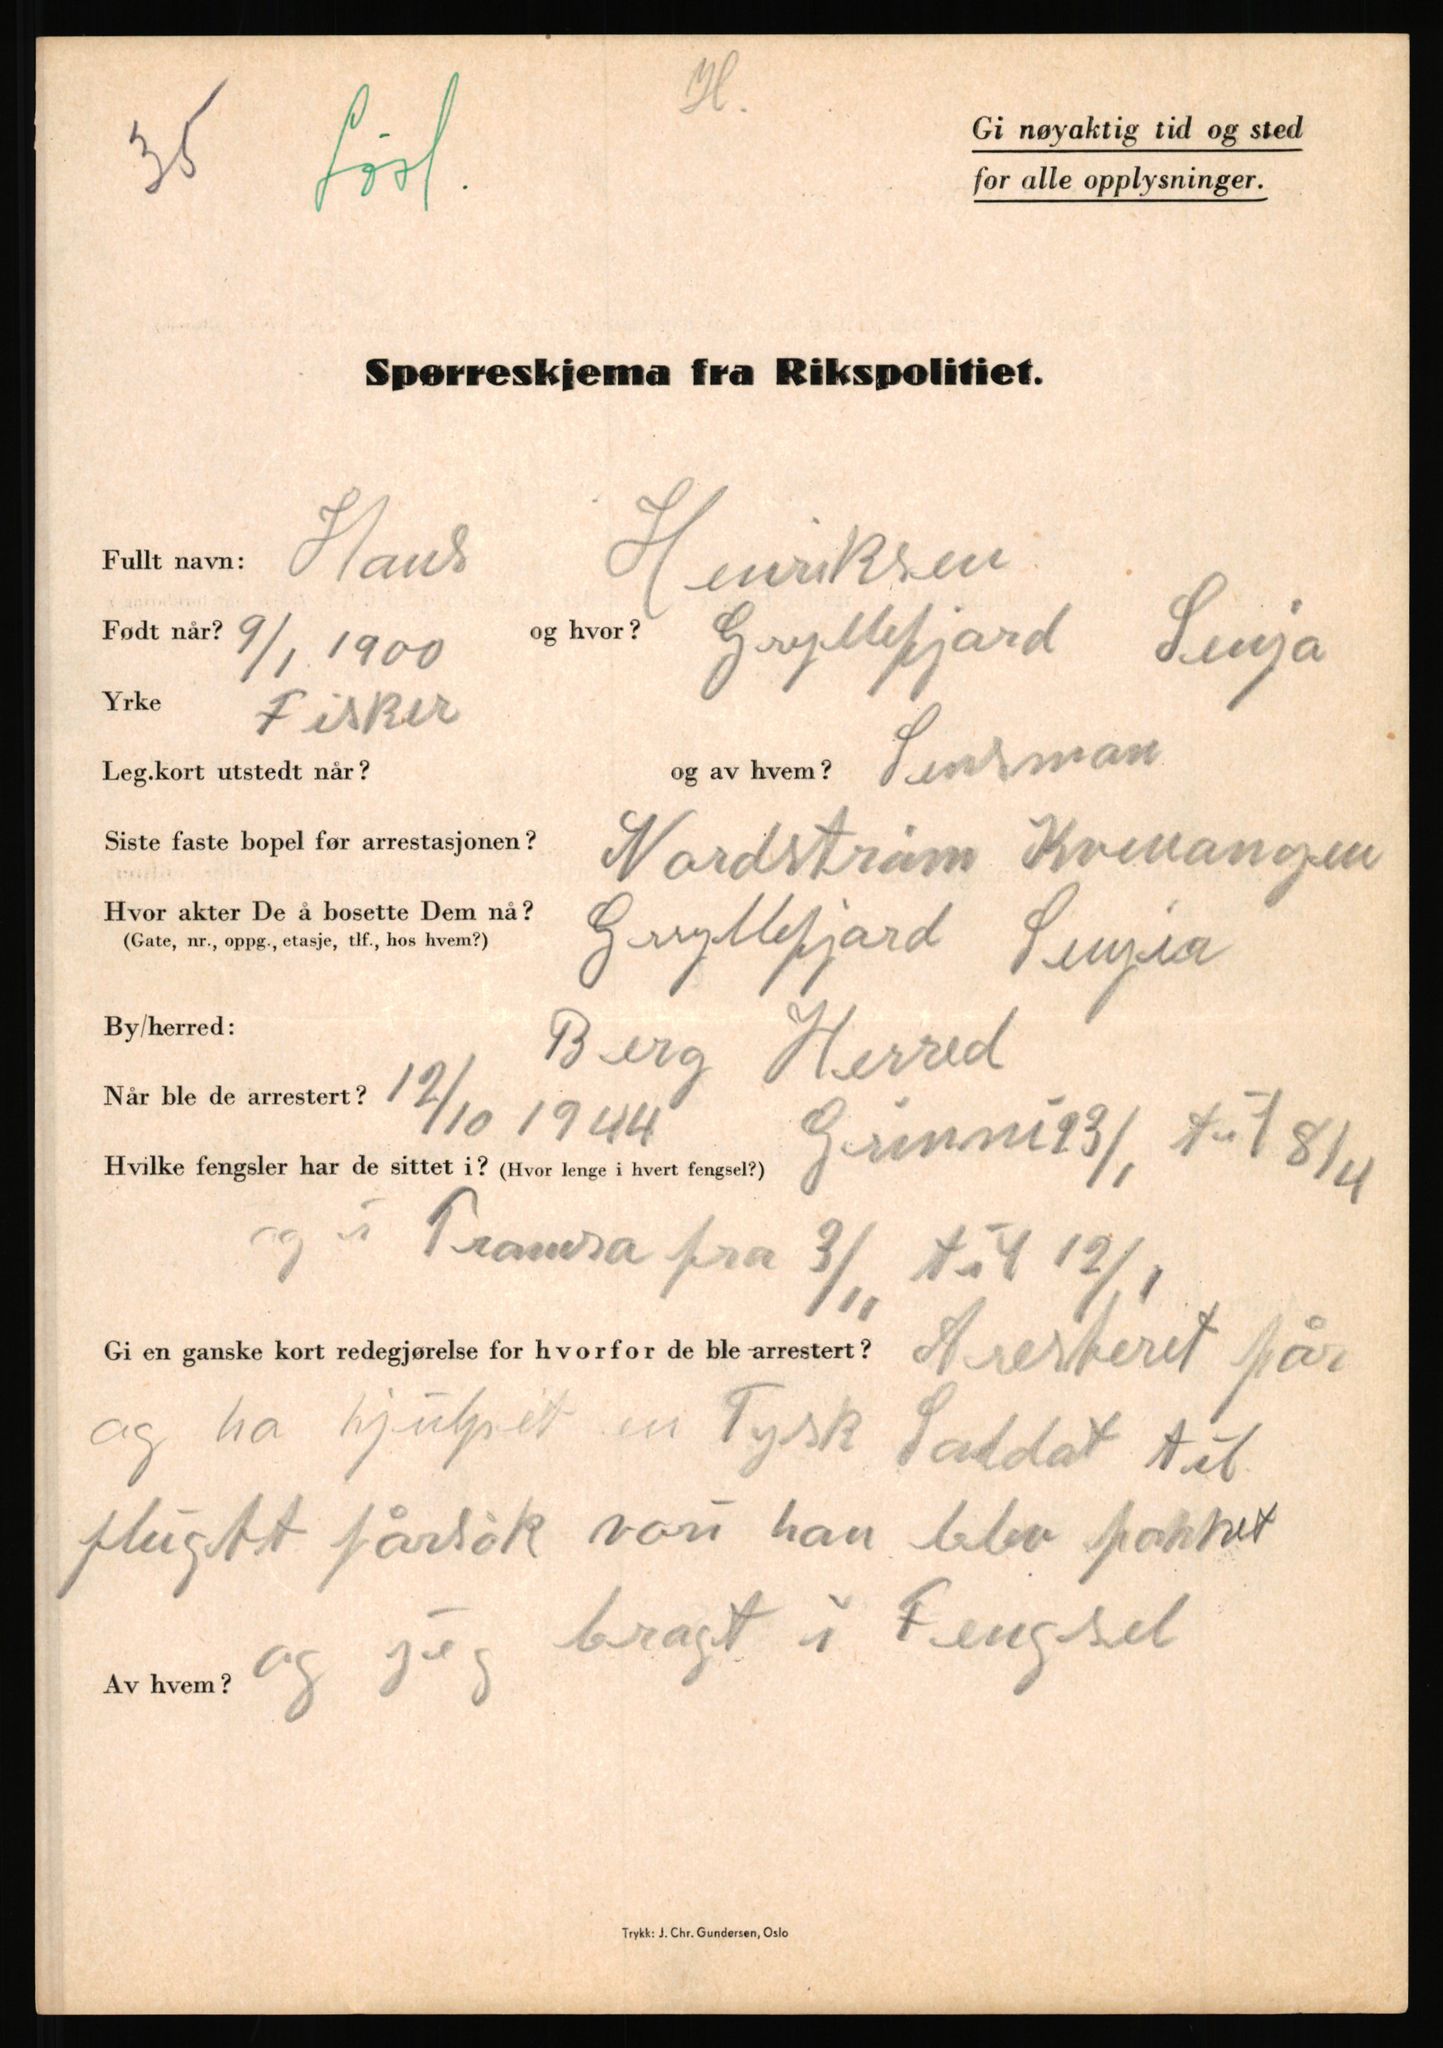 35 Lösl. H.
Gi nøyaktig tid og sted
for alle opplysninger.
Spørreskjema fra Rikspolitiet.
Fullt navn: Hans Henriksen
Født når? 9/1 1900 og hvor? Gryllefjord Senja
Yrke Fisker
Leg.kort utstedt når? og av hvem? Lensman
Siste faste bopel før arrestasjonen? Nordström Kvenangen
Hvor akter De å bosette Dem nå? Gryllefjord Senjia
(Gate, nr., oppg., etasje, tlf., hos hvem?)
By/herred: Berg Herred
Når ble de arrestert? 12/10 1944
Hvilke fengsler har de sittet i? (Hvor lenge i hvert fengsel?) Grinni 23/1 til 8/4
og i Tromsø fra 3/11 til 12/1
Gi en ganske kort redegjørelse for hvorfor de ble arrestert? Aresteret får
og ha hjulpet en Tysk Saldat til
flugtt fårsök vori han blev fakket
og jeg bragt i Fengsel
Av hvem?
Trykk: J. Chr. Gundersen, Oslo